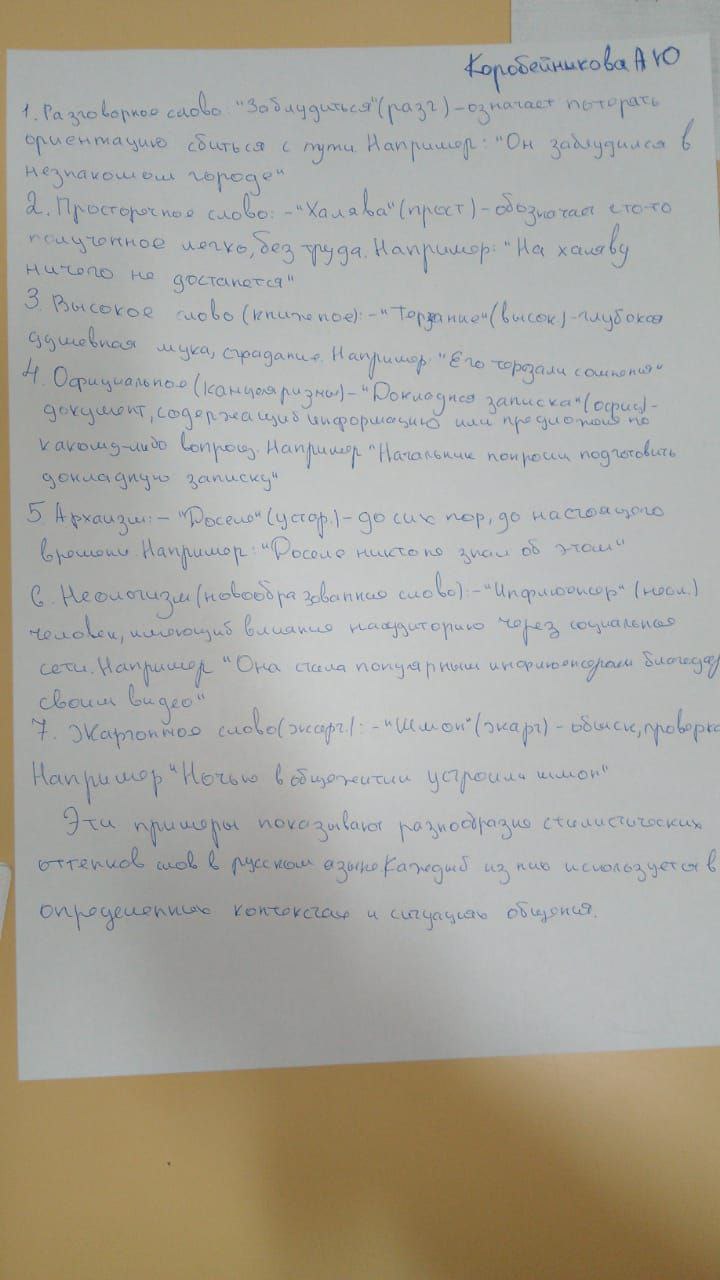 Коробейникова А Ю
1. Разговорное слово: "Заблудиться" (разг) – означает потерять
ориентацию сбиться с пути Например: "Он заблудился в
незнакомом городе"
2. Просторечное слово: – "Халява" (прост) – обозначает что-то
полученное легко, без труда. Например: "На халяву
ничего не достанется"
3. Высокое слово (книжное): – "Терзание" (высок) – глубокая
душевная мука, страдание. Например "Его терзали сомнения"
4. Официальное (канцеляризмы) – "Докладная записка" (офиц) –
документ, содержащий информацию или предложение по
какому-либо вопросу. Например "Начальник попросил подготовить
докладную записку"
5. Архаизм: – "Доселе" (устар.) – до сих пор, до настоящего
времени. Например: "Доселе никто не знал об этом"
6. Неологизм (новообразованное слово): – "Инфлюенсер" (неол.)
человек, имеющий влияние на аудиторию через социальные
сети. Например "Она стала популярным инфлюенсером благодар
своим видео"
7. Жаргонное слово (жарг.): – "Шмон" (жарг) – обыск, проверка
Например "Ночью в общежитии устроили шмон"
Эти примеры показывают разнообразие стилистических
оттенков слов в русском языке. Каждый из них используется в
определенных контекстах и ситуациях общения.